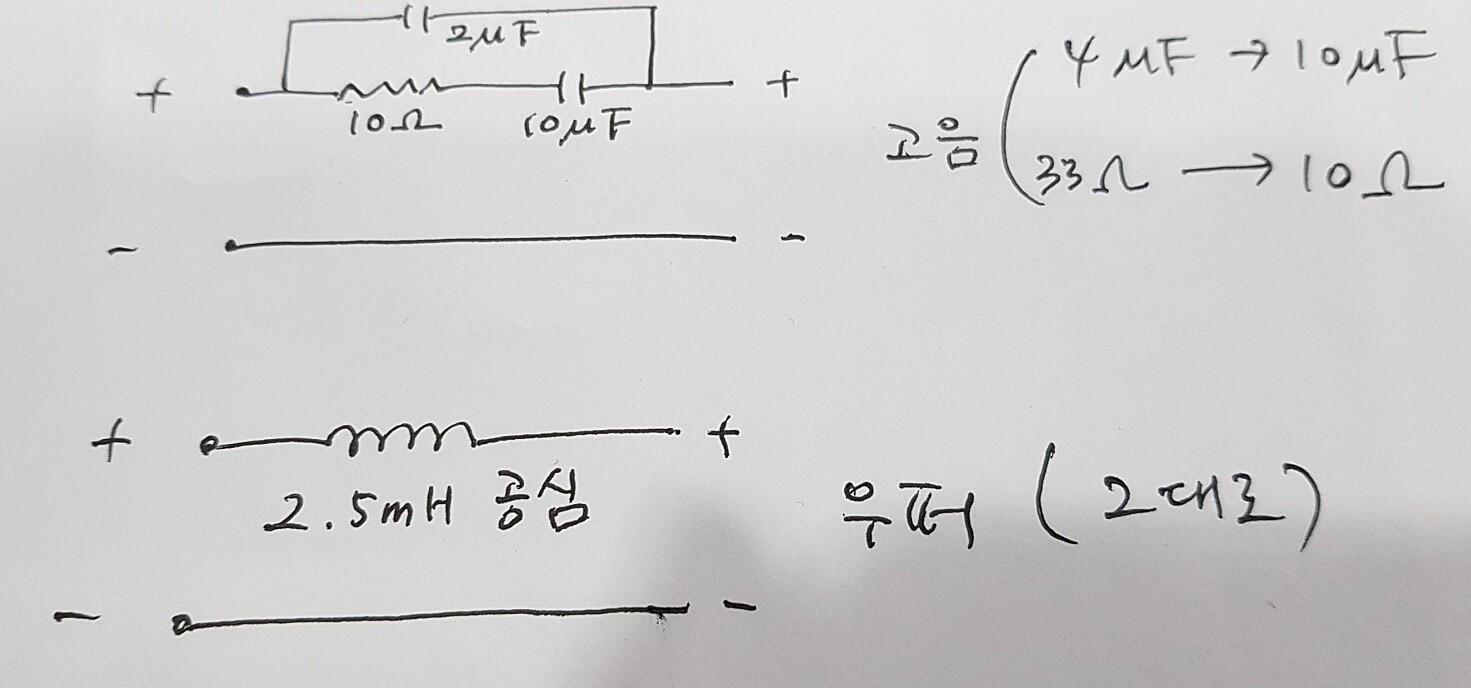 2μF
+ +
10Ω 10μF
- -
고음 ( 4μF → 10μF
33Ω → 10Ω
+ +
2.5mH 공심
- -
우퍼 (그대로)